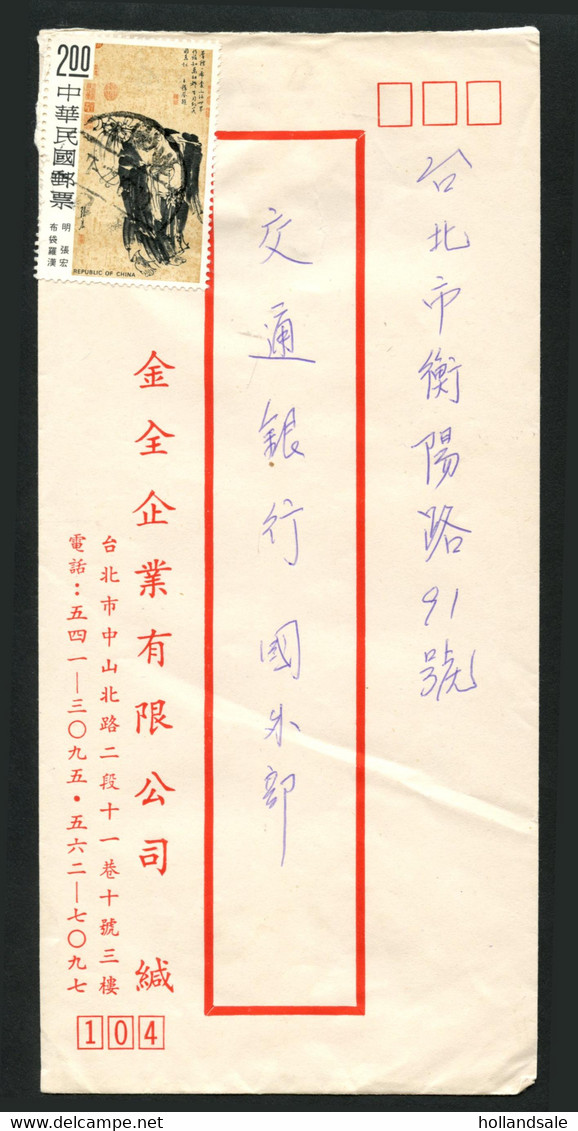 台北市衡陽路91號
交通銀行 國外部
金全企業有限公司 緘
台北市中山北路二段十一巷十號三樓
電話：五四一—三〇九五・五六二—七〇九七
104
2.00
中華民國郵票
明 張宏
布袋羅漢
REPUBLIC OF CHINA
hollandsale